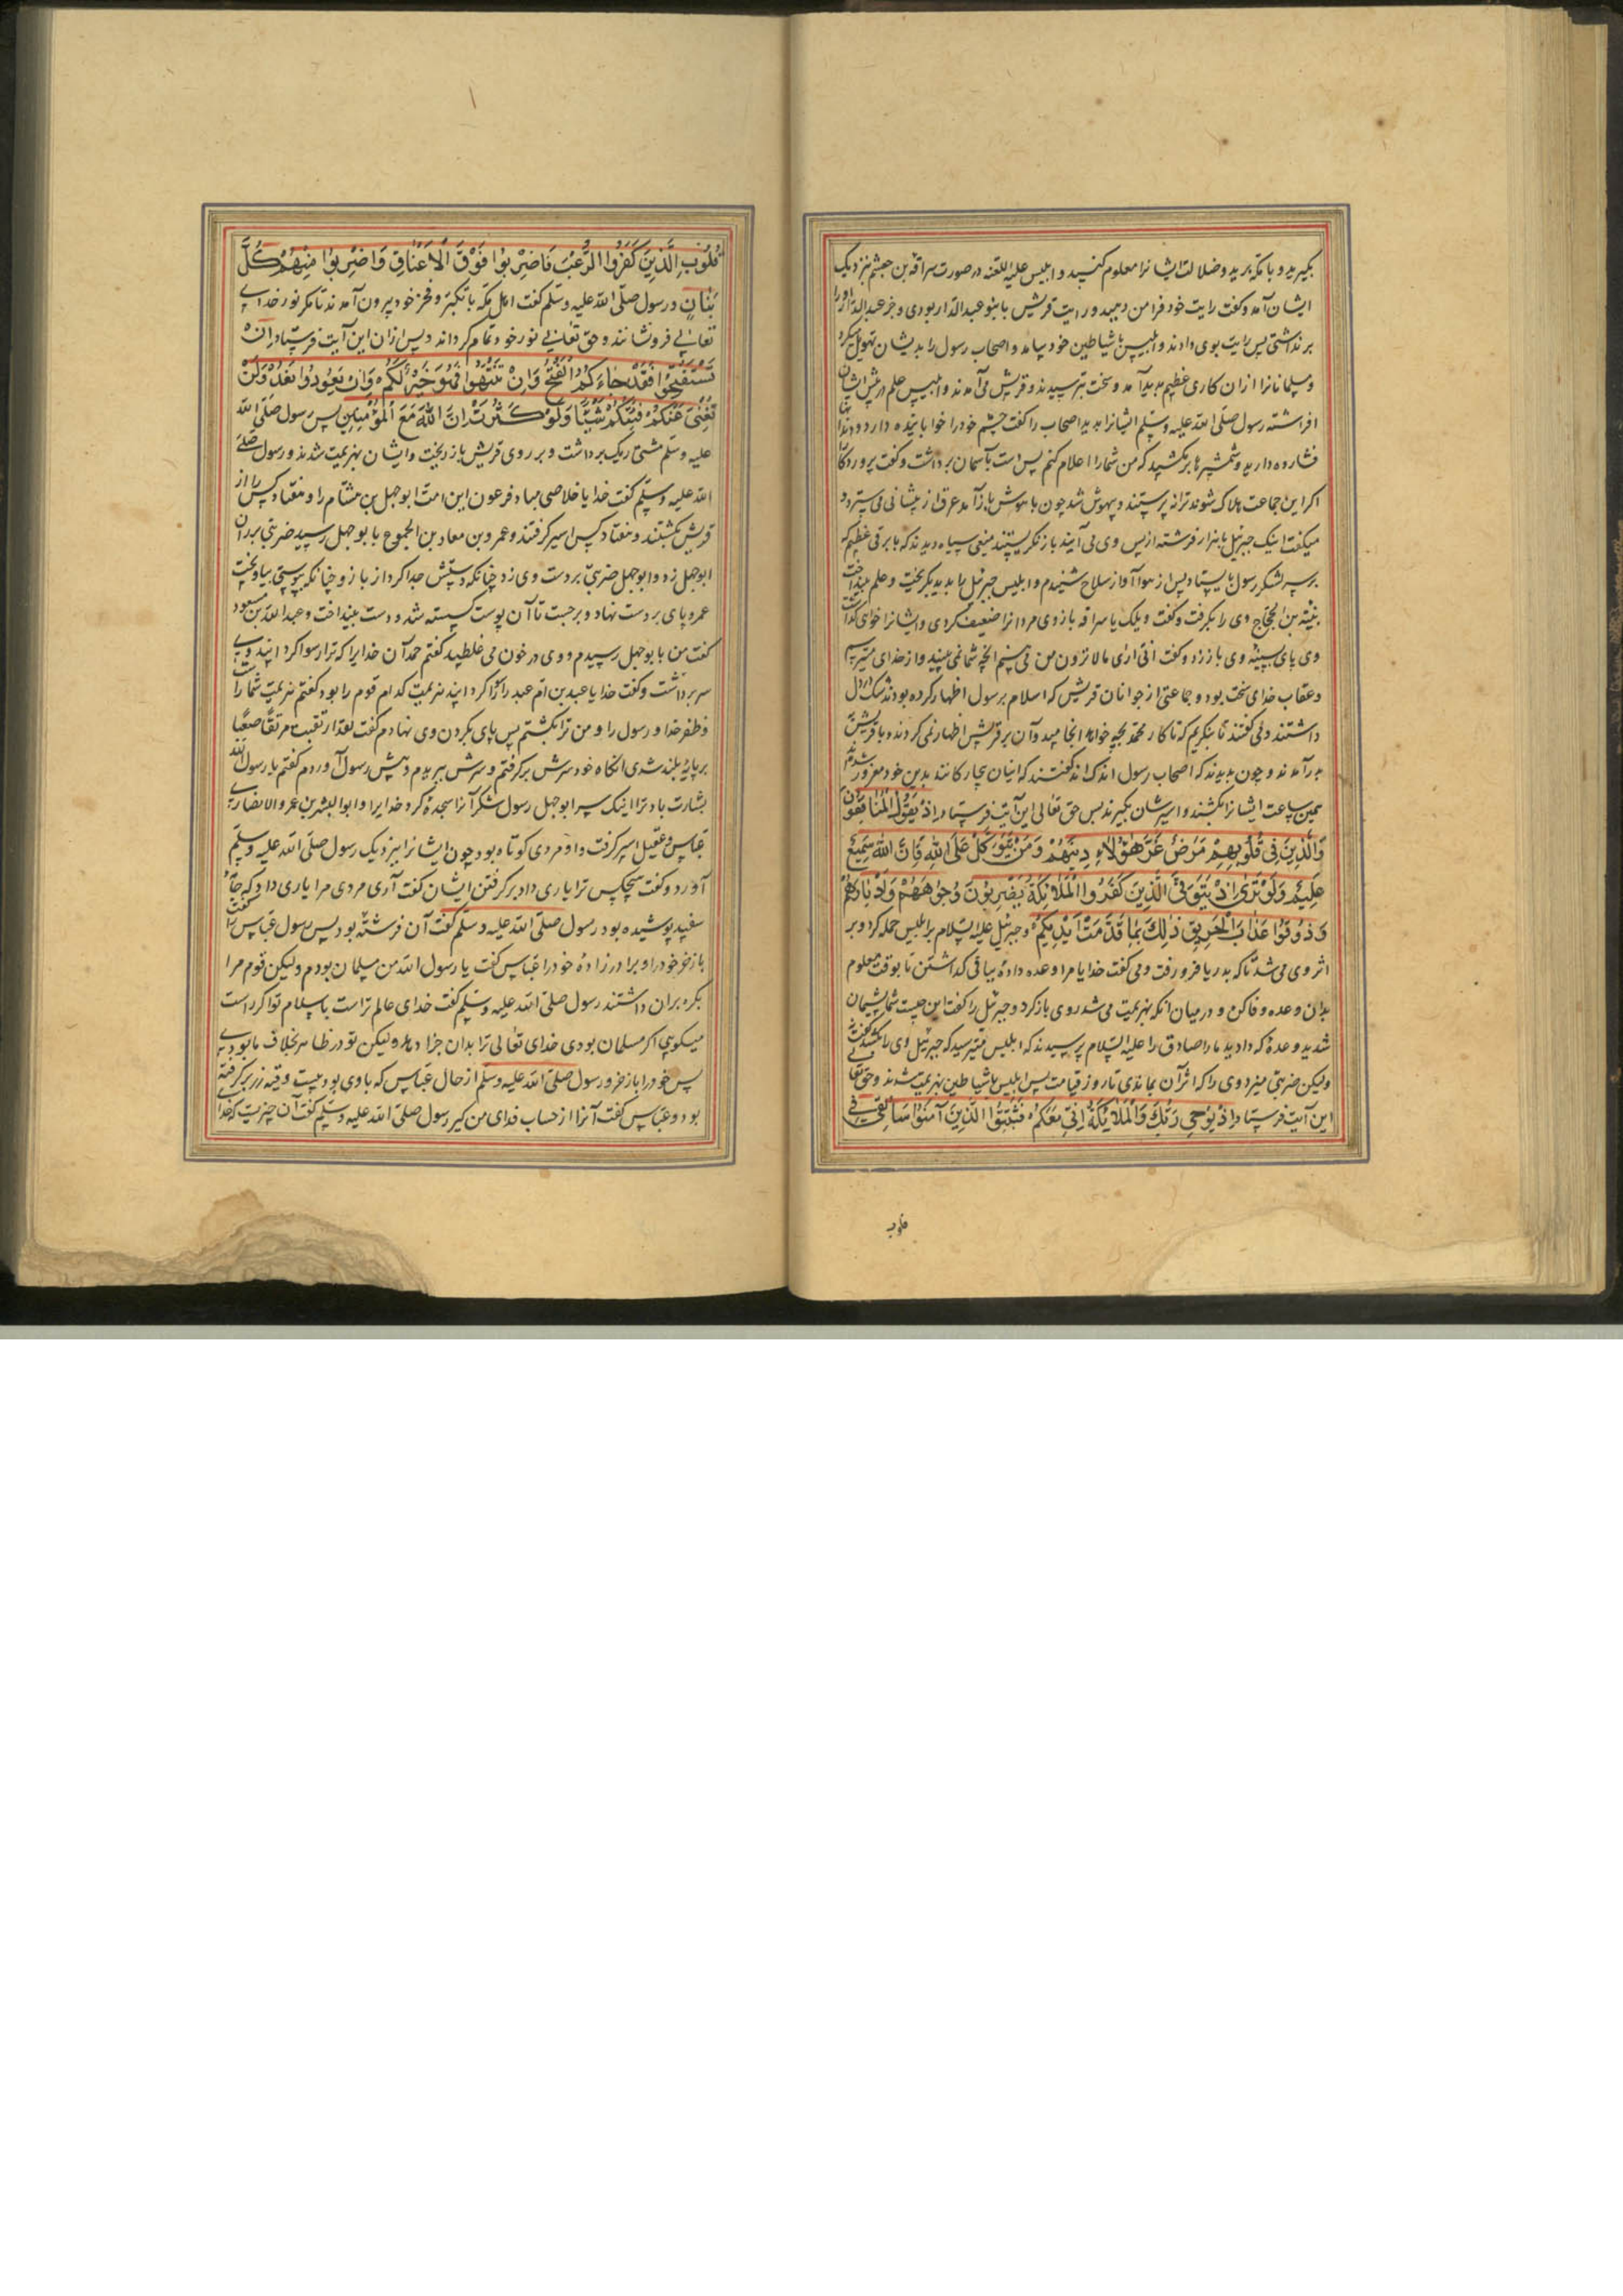 بگیرید و با مکه برید و ضلالت ایشانرا معلوم کنید و ابلیس علیه اللعنه در صورت سراقه بن جعشم بنزدیک
ایشان آمد و گفت رایت خود فرا من دهید و رایت قریش با بنو عبدالدار بودی و جز عبدالدار او را
برنداشتی پس رایت بوی دادند و ابلیس با شیاطین خود بیامد و اصحاب رسول را بدیشان تهویل میکرد
و مسلمانانرا ازان کاری عظیم پدید آمد و سخت بترسیدند و قریش می آمدند و ابلیس علم در پیش ایشان
افراشته رسول صلی الله علیه وسلم ایشانرا بدید اصحاب را گفت چشم خود را خوابانیده دارید و دندانها
فشارده دارید و شمشیرها برمکشید که من شما را اعلام کنم پس دست بآسمان برداشت و گفت پروردگارا
اگر این جماعت هلاک شوند ترا نپرستند و بیهوش شد چون با هوش باز آمد عرق از پیشانی می سترد و
میگفت اینک جبرئیل با هزار فرشته از پس وی می آیند باز نگریستند میغی سیاه دیدند که با برقی عظیم که
بر سر لشکر رسول بایستاد پس از هوا آواز سلاح شنیدم و ابلیس جبرئیل را بدید بگریخت و علم بینداخت
بن الحجاج وی را بگرفت و گفت ویلک یا سراقه بازوی مردانرا ضعیف کردی و ایشانرا خواهی گذاشت
وی پای بسینه وی باز زد و گفت انی اری ما لا ترون من می بینم انچه شما نمی بینید و از خدای میترسم
و عقاب خدای سخت بود و جماعتی از جوانان قریش که اسلام بر رسول اظهار کرده بودند شک در دل
داشتند و می گفتند تا بنگریم که تا کار محمد بچه خواهد انجامید و آن بر قریش اظهار نمی کردند و با قریش
بدر آمدند و چون بدیدند که اصحاب رسول اندک اند گفتند که اینان بیچارگانند بدین خود مغرور شده
همین ساعت ایشانرا بکشند و اسیرشان بگیرند پس حق تعالی این آیت فرستاد اِذْ یَقُولُ الْمُنَافِقُونَ
وَالَّذِینَ فِی قُلُوبِهِمْ مَرَضٌ غَرَّ هٰؤُلَاءِ دِینُهُمْ وَمَنْ یَتَوَکَّلْ عَلَی اللهِ فَاِنَّ اللهَ سَمِیعٌ
عَلِیمٌ وَلَوْ تَرٰی اِذْ یَتَوَفَّی الَّذِینَ کَفَرُوا الْمَلَائِکَةُ یَضْرِبُونَ وُجُوهَهُمْ وَاَدْبَارَهُمْ
وَذُوقُوا عَذَابَ الْحَرِیقِ ذٰلِکَ بِمَا قَدَّمَتْ اَیْدِیکُمْ و جبرئیل علیه السلام بر ابلیس حمله کرد و بر
اثر وی می شد تا که بدریا فرو رفت و می گفت خدایا مرا وعده داده بباقی گذاشتن تا بوقت معلوم
بدان وعده وفا کن و در میان انکه بهزیمت می شد روی باز کرد و جبرئیل را گفت این چیست شما پشیمان
شدید وعده که دادید ما را صادق را علیه السلام پرسیدند که ابلیس میترسید که جبرئیل وی را بکشد گفت نه
ولیکن ضربتی میزد وی را که اثر آن بماندی تا روز قیامت پس ابلیس با شیاطین بهزیمت شدند و حق تعالی
این آیت فرستاد اِذْ یُوحِی رَبُّکَ اِلَی الْمَلَائِکَةِ اَنِّی مَعَکُمْ فَثَبِّتُوا الَّذِینَ آمَنُوا سَاُلْقِی فِی
قلوب
قُلُوبِ الَّذِینَ کَفَرُوا الرُّعْبَ فَاضْرِبُوا فَوْقَ الْاَعْنَاقِ وَاضْرِبُوا مِنْهُمْ کُلَّ
بَنَانٍ و رسول صلی الله علیه وسلم گفت اهل مکه با تکبر و فخر خود بیرون آمدند تا مگر نور خدای
تعالی فرو نشانند و حق تعالی نور خود تمام گرداند و پس ازان این آیت فرستاد اِنْ
تَسْتَفْتِحُوا فَقَدْ جَاءَکُمُ الْفَتْحُ وَاِنْ تَنْتَهُوا فَهُوَ خَیْرٌ لَکُمْ وَاِنْ تَعُودُوا نَعُدْ وَلَنْ
تُغْنِیَ عَنْکُمْ فِئَتُکُمْ شَیْئًا وَلَوْ کَثُرَتْ وَاَنَّ اللهَ مَعَ الْمُؤْمِنِینَ پس رسول صلی الله
علیه وسلم مشتی ریگ برداشت و بر روی قریش باز ریخت و ایشان بهزیمت شدند و رسول صلی
الله علیه وسلم گفت خدایا خلاصی مباد فرعون این امت ابوجهل بن هشام را و هفتاد کس را از
قریش بکشتند و هفتاد کس اسیر گرفتند و عمرو بن معاد بن الجموح با بوجهل رسید ضربتی بر ران
ابوجهل زد و ابوجهل ضربتی بر دست وی زد چنانکه دستش جدا کرد از بازو چنانکه بپوستی بیاویخت
عمرو پای بر دست نهاد و برجست تا آن پوست گسسته شد و دست بینداخت و عبدالله بن مسعود
گفت من با بوجهل رسیدم و وی در خون می غلطید گفتم حمد آن خدایرا که ترا رسوا کرد
سر برداشت و گفت خدایا عبد بن ام عبد را رسوا کرد هزیمت کدام قوم را بود گفتم هزیمت شما را
و ظفر خدا و رسول را و من ترا بکشتم پس پای بگردن وی نهادم گفت لقد ارتقیت مرتقا صعبا
بر پایه بلند شدی انگاه خود سرش برگرفتم و سرش ببریدم و پیش رسول آوردم گفتم یا رسول الله
بشارت باد ترا اینک سر ابوجهل رسول شکر آنرا سجده کرد خدایرا و ابوالبشر بن عمرو الانصاری
عباس و عقیل اسیر گرفت و او مردی کوتاه بود چون ایشانرا بنزدیک رسول صلی الله علیه وسلم
آورد و گفت هیچکس ترا یاری داد بر گرفتن ایشان گفت آری مردی مرا یاری داد که جامه
سفید پوشیده بود رسول صلی الله علیه وسلم گفت آن فرشته بود پس رسول عباس را گفت
باز خر خود را و برادرزاده خود را عباس گفت یا رسول الله من مسلمان بودم ولیکن قوم مرا
بکره بران داشتند رسول صلی الله علیه وسلم گفت خدای عالم تراست باسلام تو اگر راست
میگویی اگر مسلمان بودی خدای تعالی ترا بدان جزا دهد ولیکن تو در ظاهر بخلاف ما بودی
پس خود را باز خر و رسول صلی الله علیه وسلم از حال عباس که با وی بود بیست وقیه زر برگرفته
بود و عباس گفت آنرا از حساب فدای من گیر رسول صلی الله علیه وسلم گفت آن چیزیست که خدا